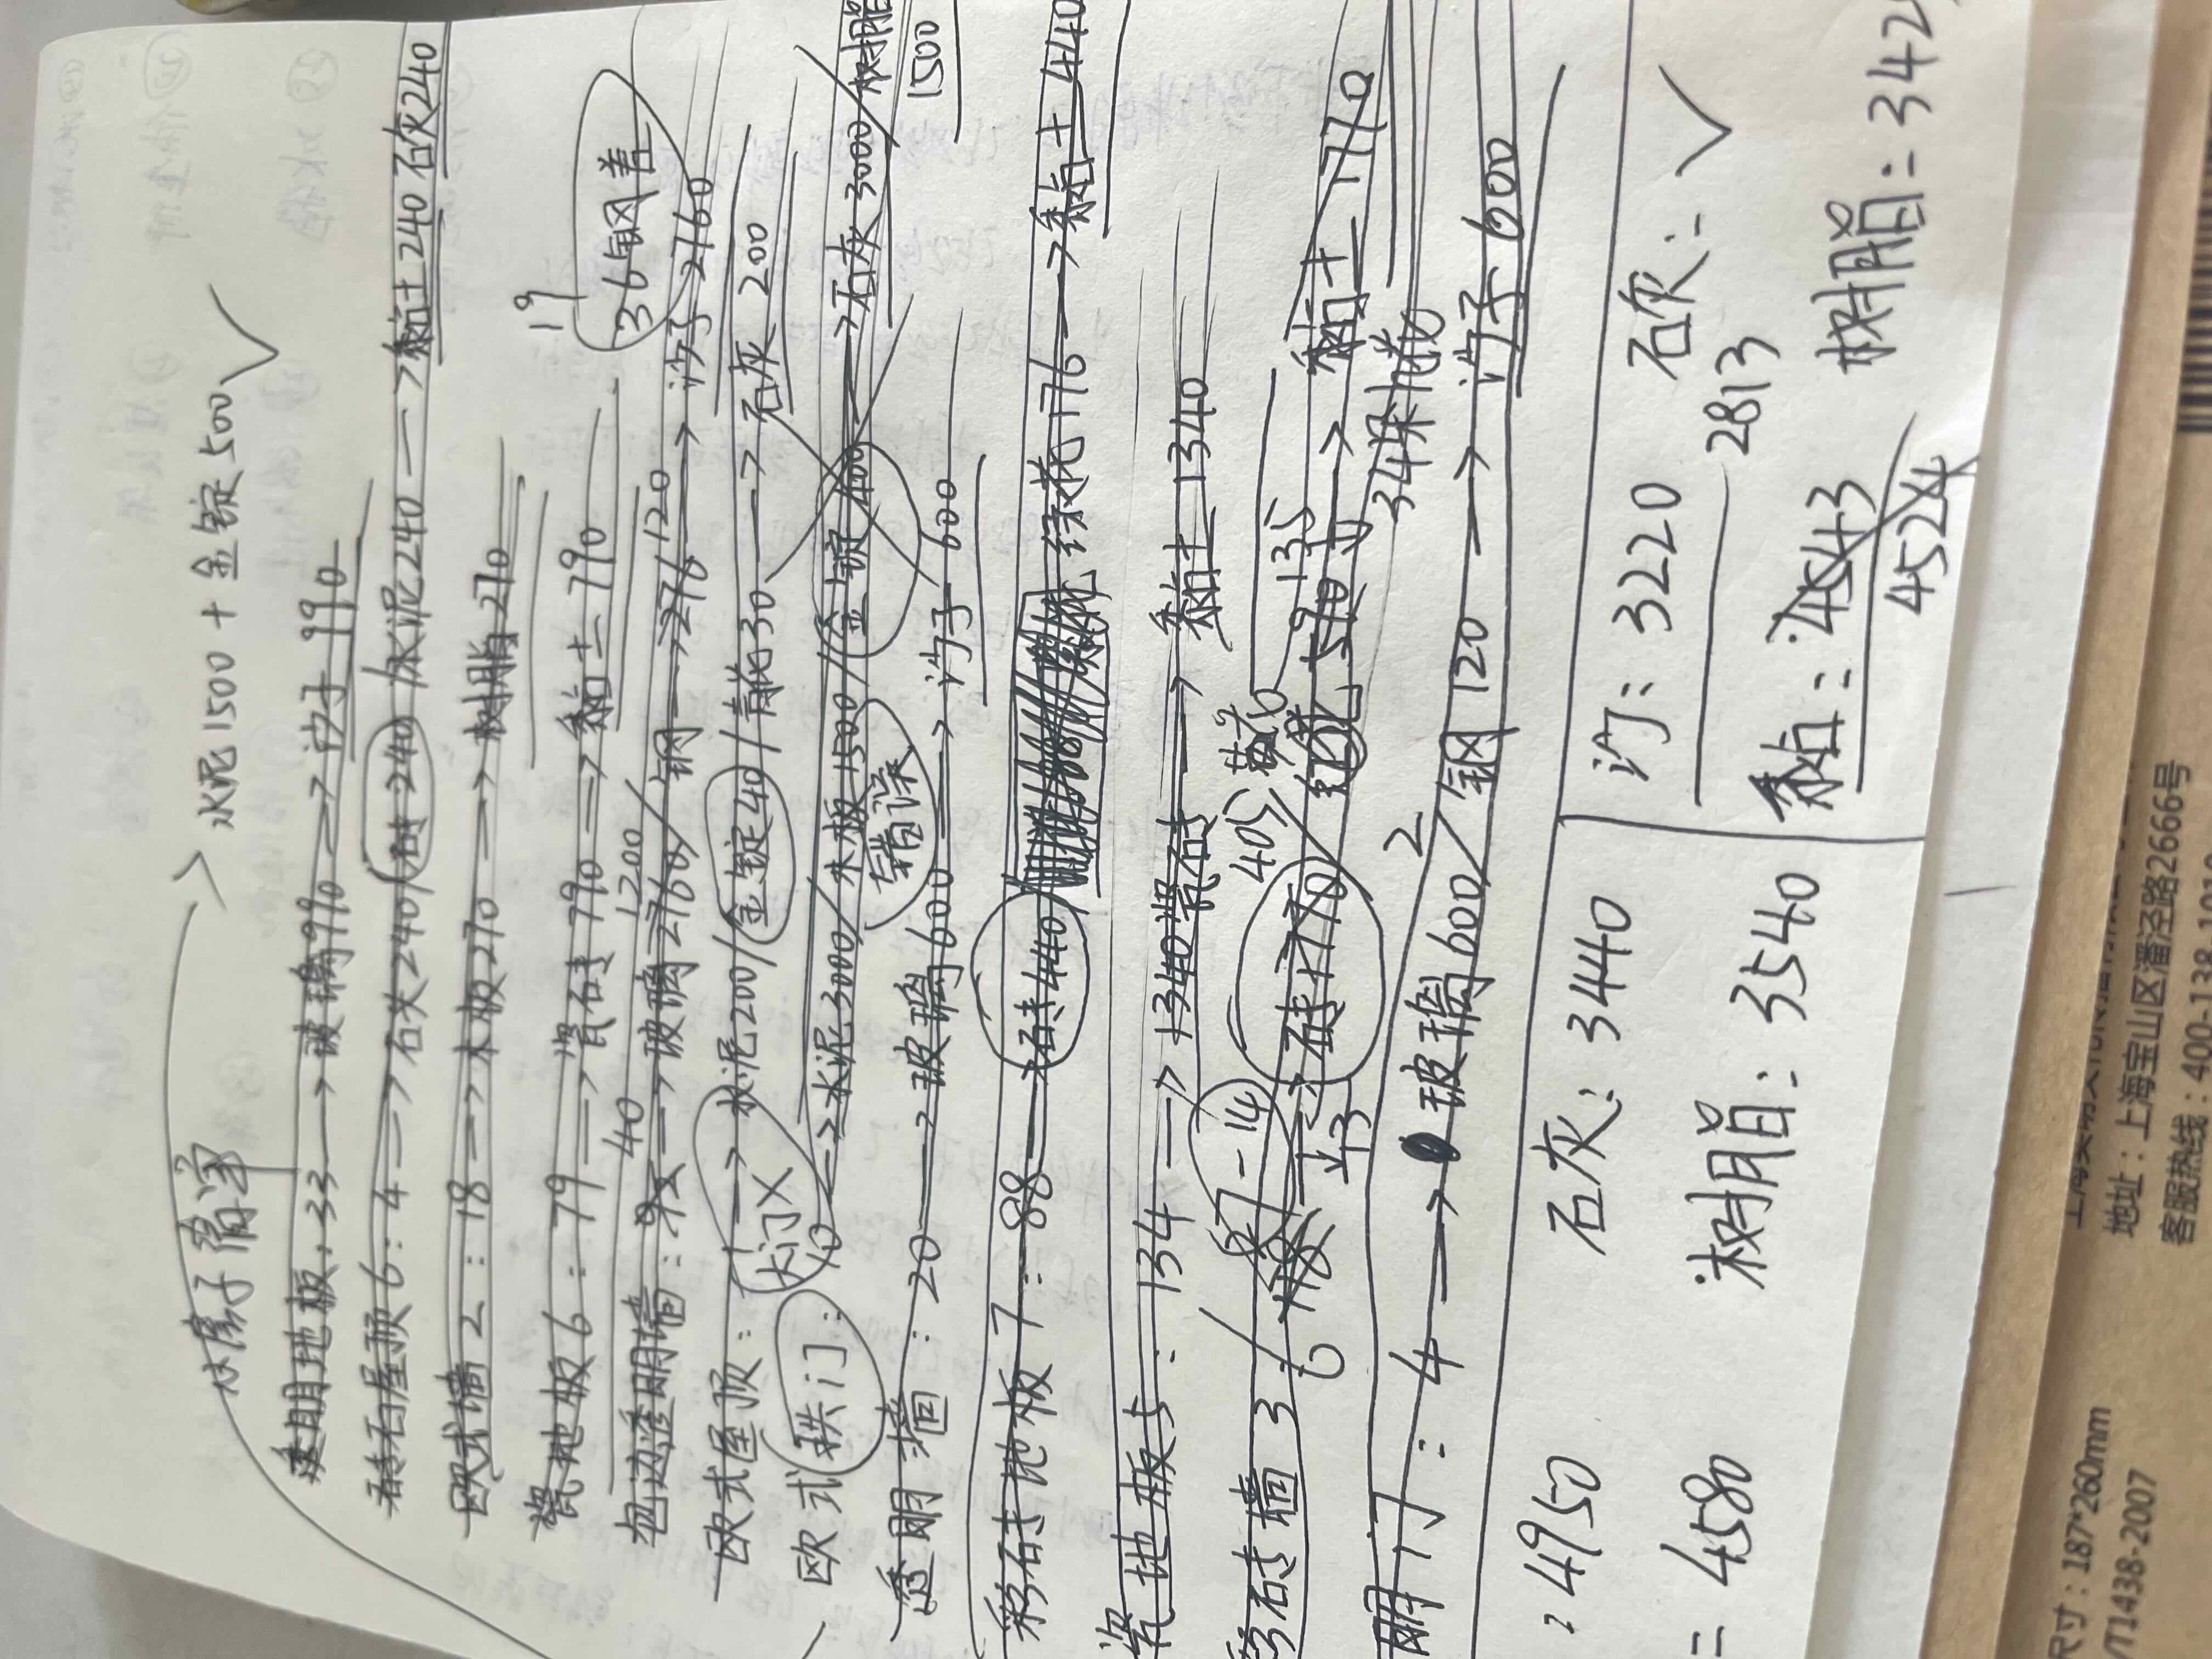 水泥1500+金锭500✓
透明地板:33→玻璃990→沙子990
砖石屋顶6:4→石头240/砖240/水泥240→黏土240石灰240
欧式墙2:18→木板270→树脂270
19
36钢差
瓷地板6:79→瓷砖790→黏土790
40 1200 120
包边透明墙:→玻璃2760/钢→276→沙子2760
欧式屋顶:1→水泥200/金锭40/青花30→石灰200
大门X
欧式拱门:10→水泥3000/木板1500/金锭400→石灰3000/树脂1500
错误
透明墙:20→玻璃600→沙子600
彩砖地板7:88→砖440/绿花176→黏土440
瓷地板5:134→1340瓷砖→黏土1340
差-14 405 黄花 135
彩砖墙3:→砖1770/红花590→黏土1770
6 立3 34朵
明门:4→玻璃600/钢120→沙子600
2
:4950 石灰:3440 沙:3220 石灰:✓
2813
=4580 树脂:3540 黏:4543 树脂:342
4524
尺寸:187*260mm
/T1438-2007
地址:上海宝山区潘泾路2666号
客服热线:400-138-